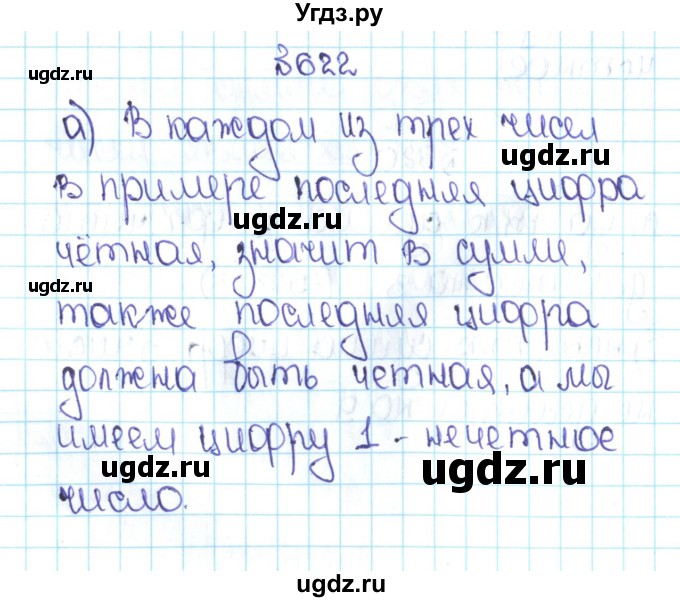 Угдз.ру
№622
ugdz.ru
ugdz.ru
а) В каждом из трех чисел
ugdz.ru
в примере последняя цифра
ugdz.ru
чётная, значит в сумме,
ugdz.ru
также последняя цифра
должна быть четная, а мы
имеем цифру 1 - нечетное
ugdz.ru
ugdz.ru
число.
ugdz.ru